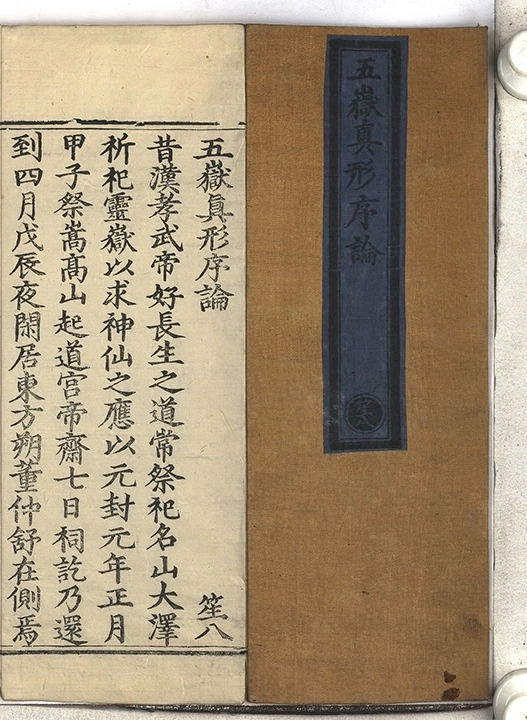 五嶽真形序論
笙八
五嶽真形序論 笙八
昔漢孝武帝好長生之道常祭祀名山大澤
祈祀靈嶽以求神仙之應以元封元年正月
甲子祭嵩髙山起道宮帝齋七日祠訖乃還
到四月戊辰夜閑居東方朔董仲舒在側焉